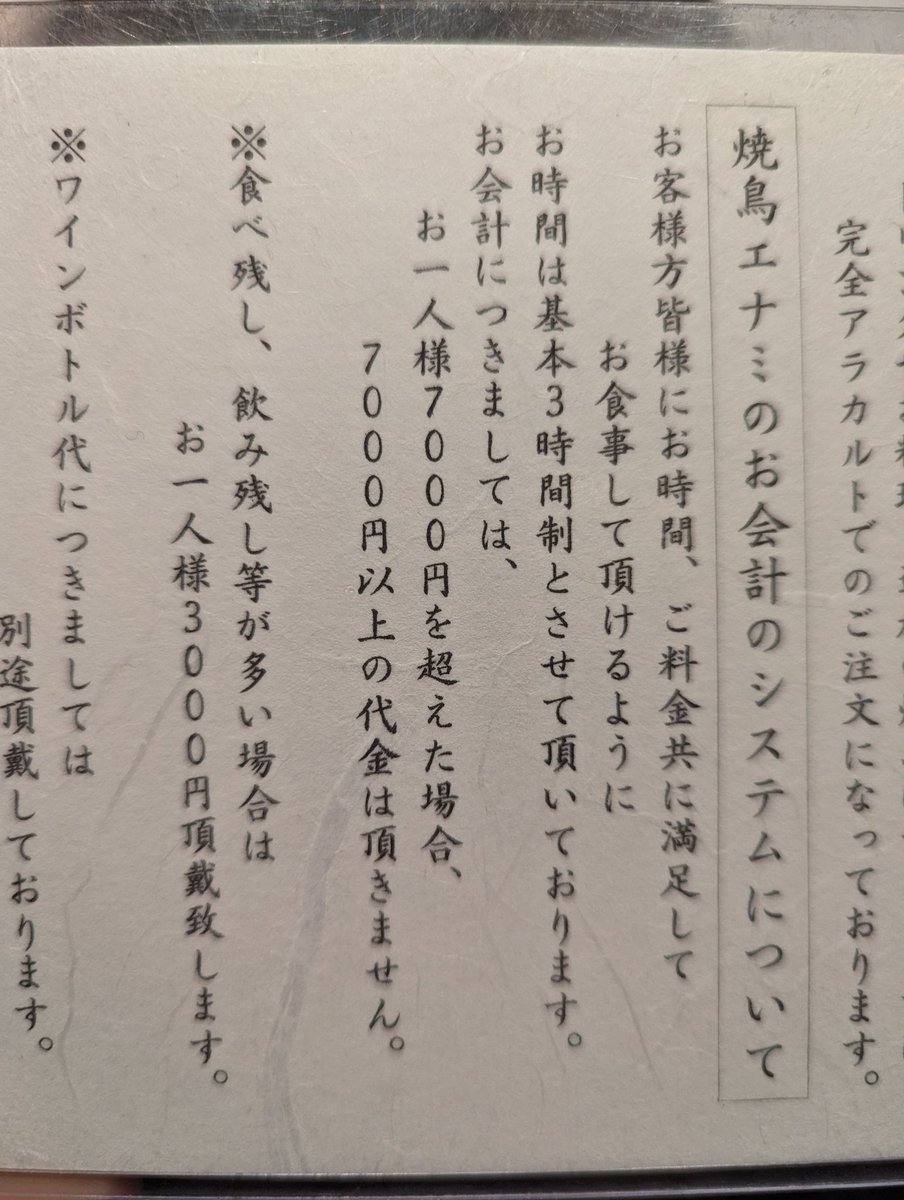 完全アラカルトでのご注文になっております。
焼鳥エナミのお会計のシステムについて
お客様方皆様にお時間、ご料金共に満足して
お食事して頂けるように
お時間は基本3時間制とさせて頂いております。
お会計につきましては、
お一人様7000円を超えた場合、
7000円以上の代金は頂きません。
※食べ残し、飲み残し等が多い場合は
お一人様3000円頂戴致します。
※ワインボトル代につきましては
別途頂戴しております。